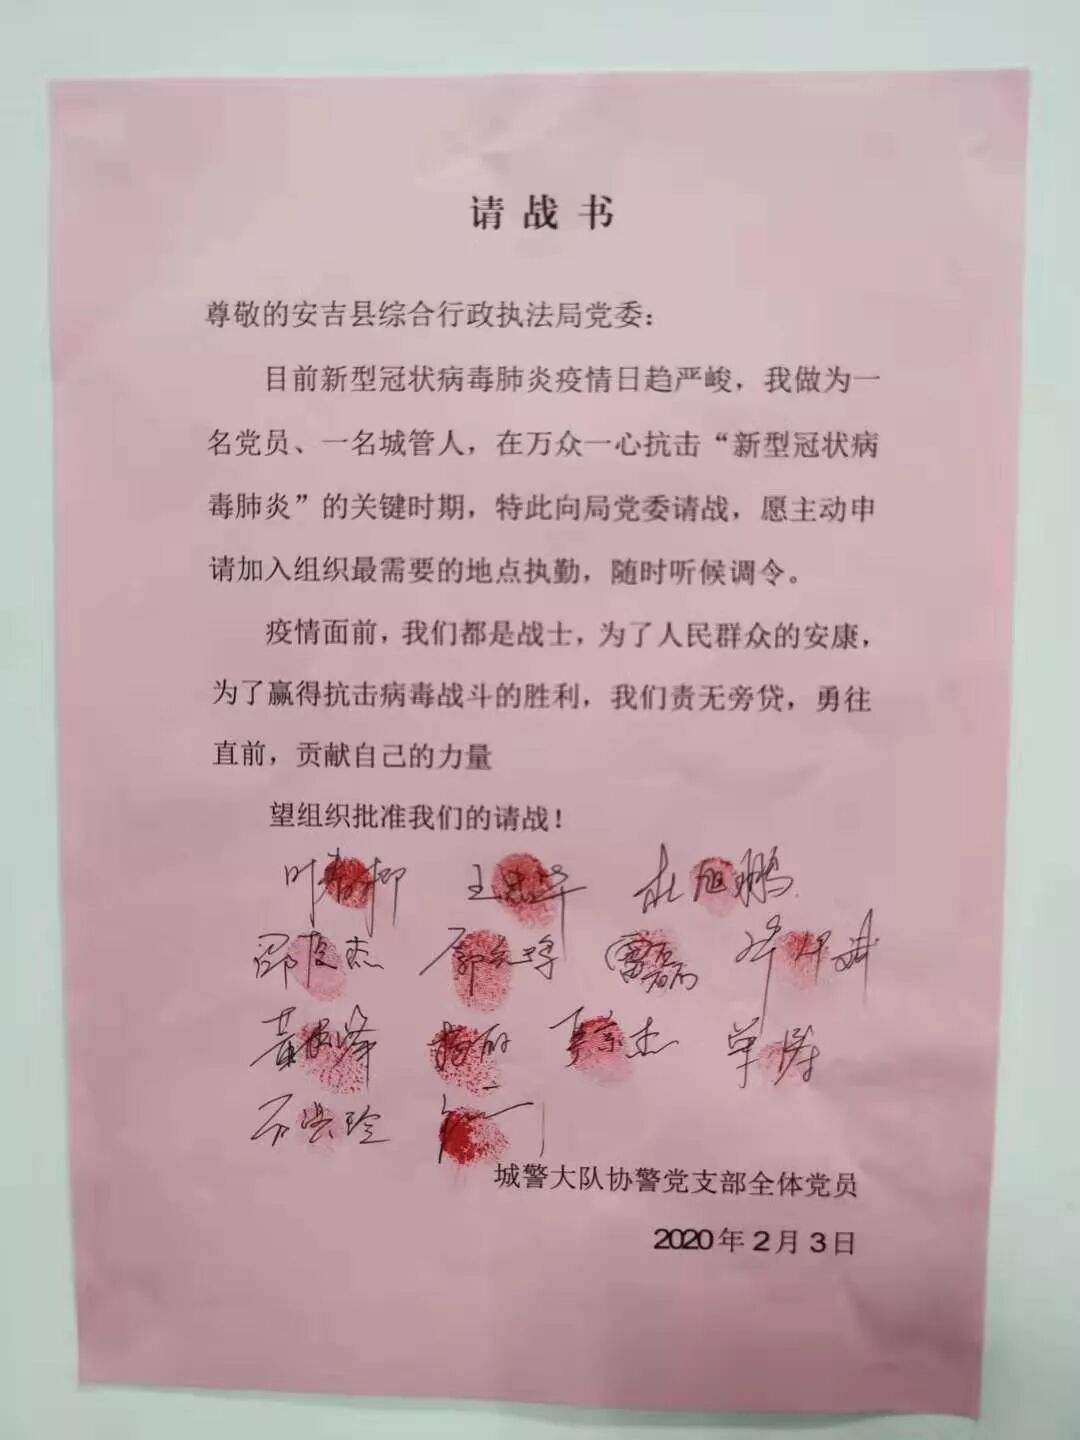 请战书
尊敬的安吉县综合行政执法局党委：
目前新型冠状病毒肺炎疫情日趋严峻，我做为一
名党员、一名城管人，在万众一心抗击“新型冠状病
毒肺炎”的关键时期，特此向局党委请战，愿主动申
请加入组织最需要的地点执勤，随时听候调令。
疫情面前，我们都是战士，为了人民群众的安康，
为了赢得抗击病毒战斗的胜利，我们责无旁贷，勇往
直前，贡献自己的力量
望组织批准我们的请战！
王忠华 杜旭鹏
雷磊
单涛
城警大队协警党支部全体党员
2020年2月3日